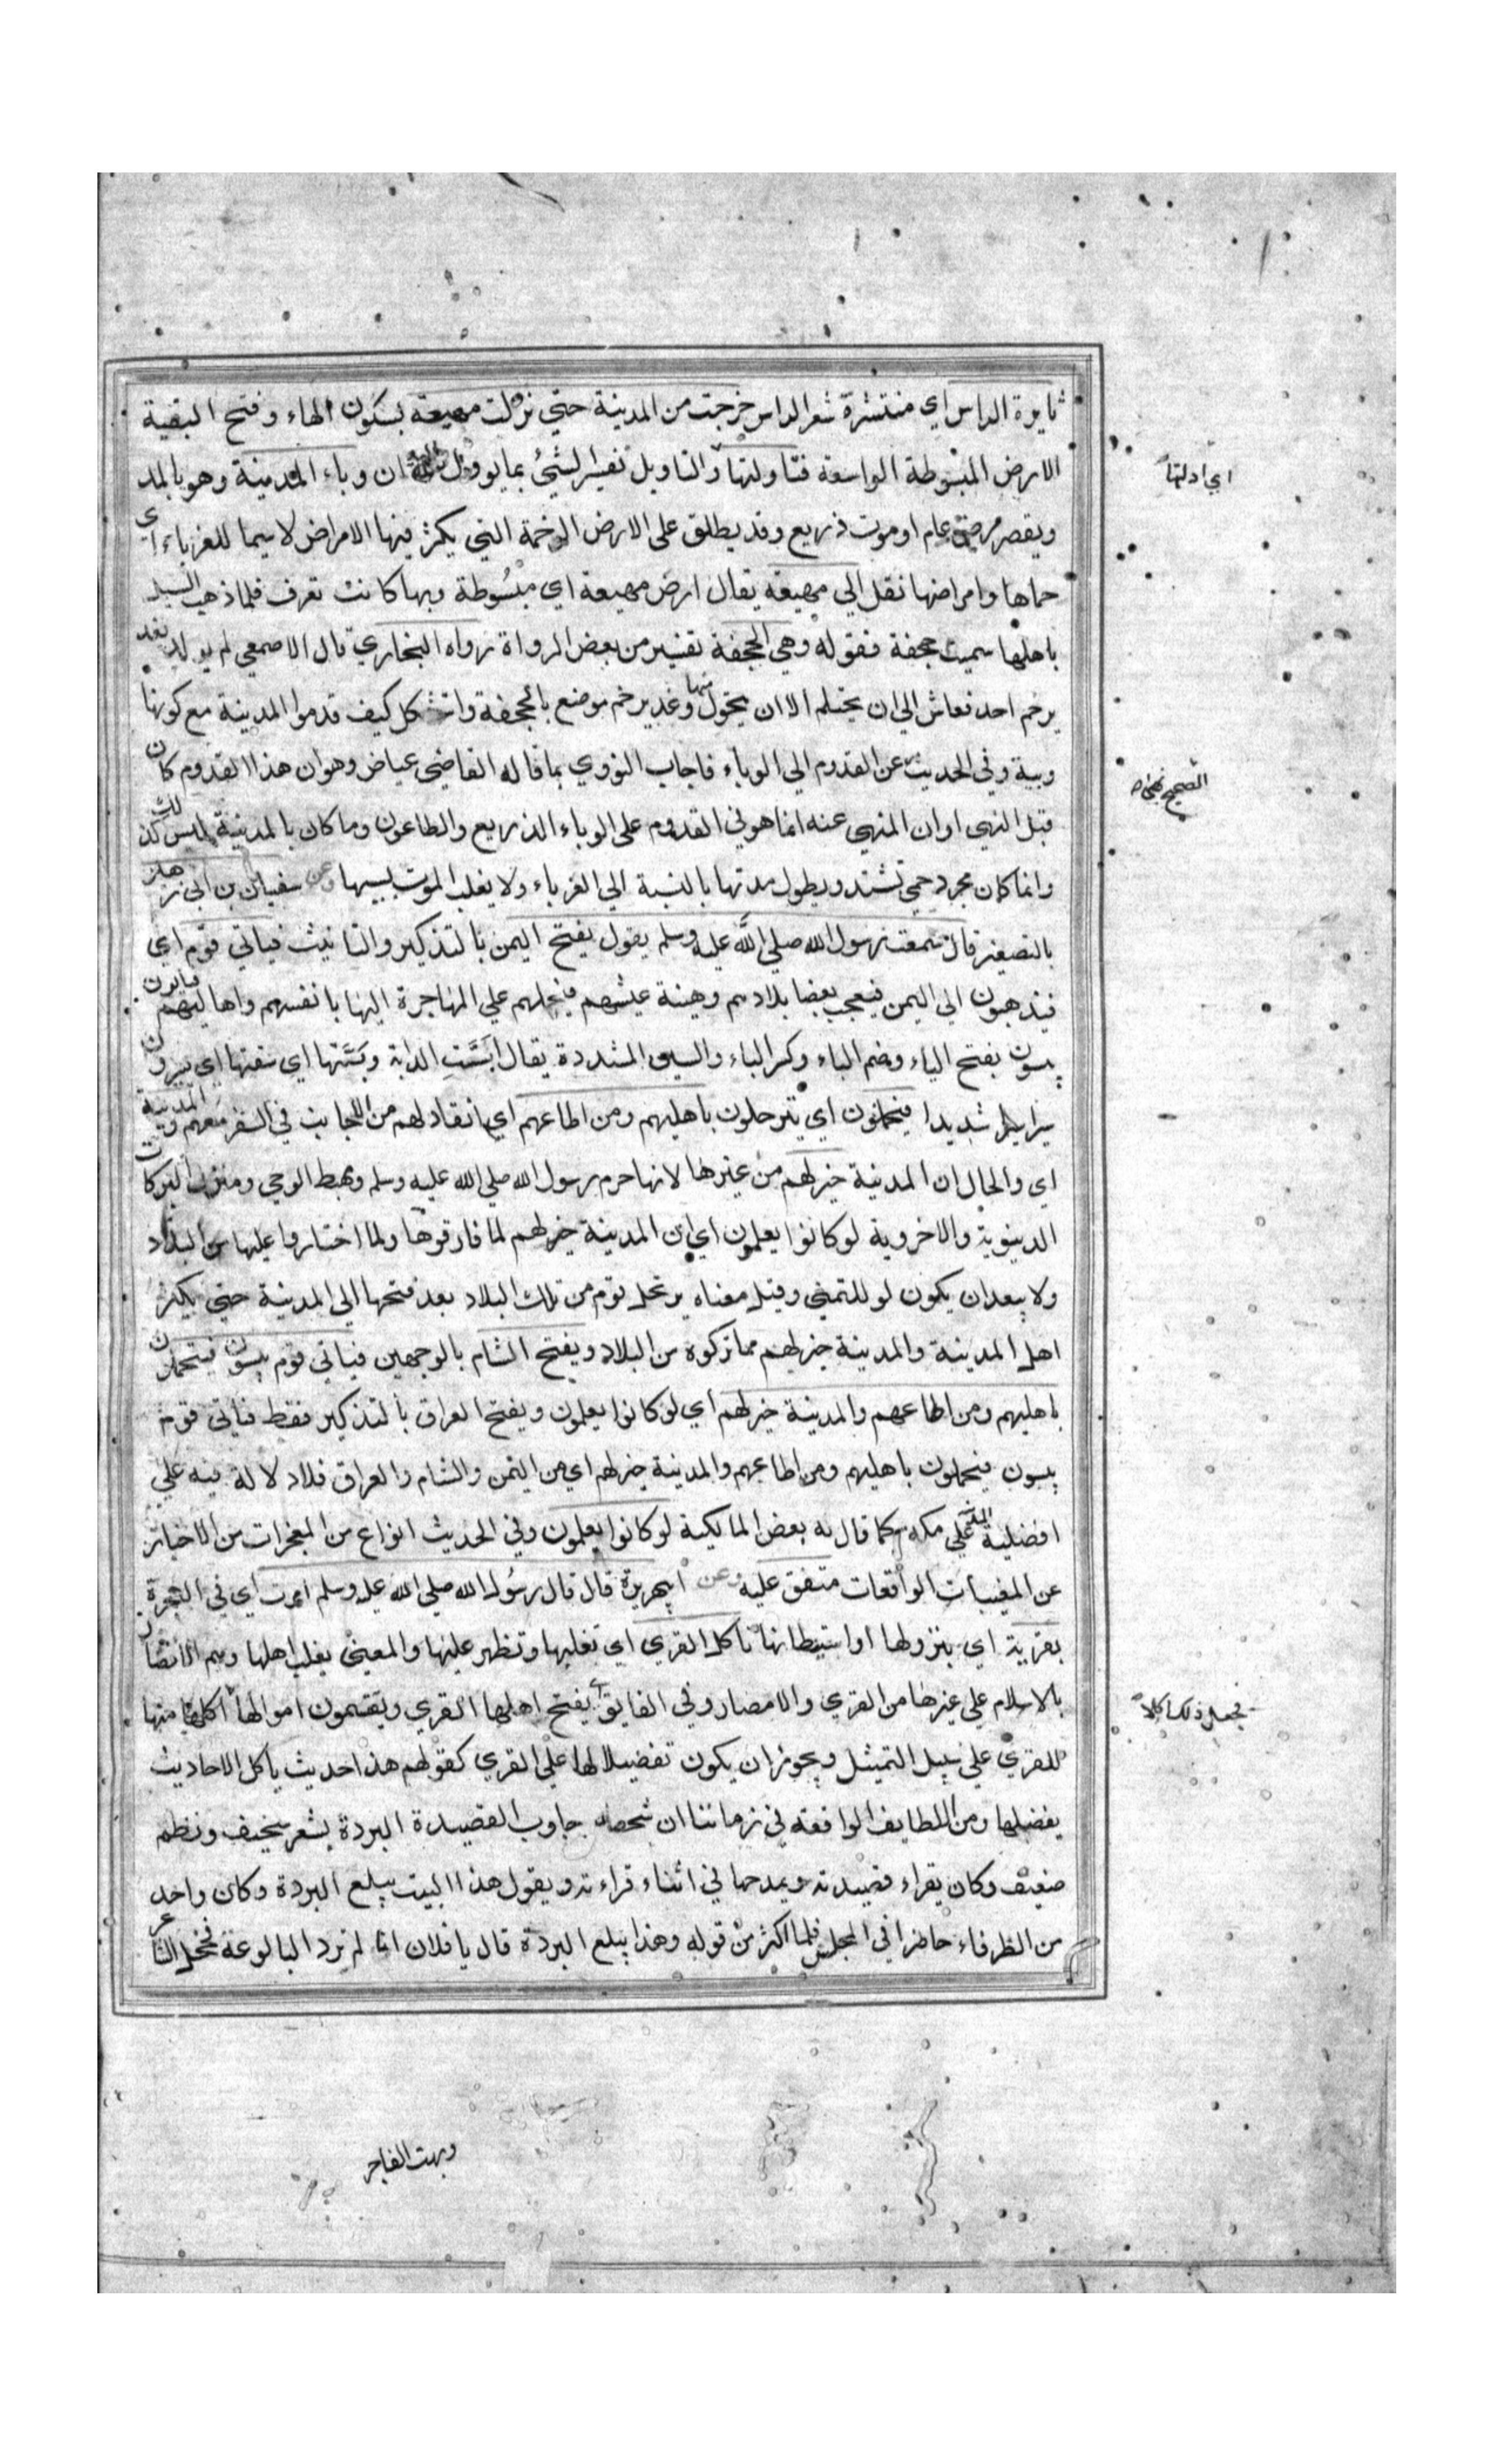 ثايرة الراس اي منتشرة شعر الراس خرجت من المدينة حتي نزلت مهيعة بسكون الهاء وفتح البقية
الارض المبسوطة الواسعة فتاولتها والتاويل تفسير الشيء بما يوول اليه ان وباء المدينة وهو بالمد
ويقصر مرض عام او موت ذريع وقد يطلق علي الارض الوخمة التي يكثر فيها الامراض لا سيما للغرباء اي
حماها وامراضها نقل الي مهيعة يقال ارض مهيعة اي مبسوطة وبها كانت تعرف فلما ذهب السيل
باهلها سميت جحفة فقوله وهي الجحفة تفسير من بعض الرواة رواه البخاري قال الاصمعي لم يولد بغدير
خم احد فعاش الي ان يحتلم الا ان يتحول منها وغدير خم موضع بالجحفة واستشكل كيف قدموا المدينة مع كونها
وبية وفي الحديث عن القدوم الي الوباء فاجاب النووي بما قاله القاضي عياض وهو ان هذا القدوم كان
قبل النهي او ان المنهي عنه انما هو في القدوم علي الوباء الذريع والطاعون وما كان بالمدينة ليس كذلك
وانما كان مجرد حمي تشتد ويطول مدتها بالنسبة الي الغرباء ولا يغلب الموت بسببها وعن سفيان بن ابي زهير
بالتصغير قال سمعت رسول الله صلي الله عليه وسلم يقول يفتح اليمن بالتذكير والتانيث فياتي قوم اي
فيذهبون الي اليمن فيعجب بعضا بلادهم وهيئة عيشهم فيحملهم علي المهاجرة اليها بانفسهم واهاليهم فياتون
يبسون بفتح الياء وضم الباء وكسر الباء والسين المشددة يقال ابست الدابة وبستها اي سقتها اي يسيرون
سيرا شديدا فيتحملون اي يترحلون باهليهم ومن اطاعهم اي انقاد لهم من الاجانب في السفر معهم والمدينة
اي والحال ان المدينة خير لهم من غيرها لانها حرم رسول الله صلي الله عليه وسلم ومهبط الوحي ومنزل البركات
الدنيوية والاخروية لو كانوا يعلمون اي ان المدينة خير لهم لما فارقوها ولما اختاروا عليها من البلاد
ولا يبعد ان يكون لو للتمني وقيل معناه يرتحل قوم من تلك البلاد بعد فتحها الي المدينة حتي يكثر
اهل المدينة والمدينة خير لهم مما تركوه من البلاد ويفتح الشام بالوجهين فياتي قوم يبسون فيتحملون
باهليهم ومن اطاعهم والمدينة خير لهم اي لو كانوا يعلمون ويفتح العراق بالتذكير فقط فياتي قوم
يبسون فيتحملون باهليهم ومن اطاعهم والمدينة خير لهم اي من اليمن والشام والعراق فلا دلالة فيه علي
افضلية المدينة علي مكه كما قال به بعض المالكية لو كانوا يعلمون وفي الحديث انواع من المعجزات من الاخبار
عن المغيبات الواقعات متفق عليه وعن ابي هريرة قال قال رسول الله صلي الله عليه وسلم امرت اي في الهجرة
بقرية اي بنزولها او استيطانها تاكل القري اي تغلبها وتظهر عليها والمعني يغلب اهلها وهم الانصار
بالاسلام علي غيرها من القري والامصار وفي الفايق اي يفتح اهلها القري ويقتسمون اموالها اكلا منها
للقري علي سبيل التمثيل ويجوز ان يكون تفضيلا لها علي القري كقولهم هذا حديث ياكل الاحاديث
يفضلها ومن اللطايف الواقعه في زماننا ان شخصا جاوب القصيدة البردة بشعر سخيف ونظم
ضعيف وكان يقراء قصيدته ويمدحها في اثناء قراءته ويقول هذا البيت يبلع البردة وكان واحد
من الظرفاء حاضرا في المجلس فلما اكثر من قوله وهذا يبلع البردة قال يا فلان انا لم نرد البالوعة فخجل الشاعر
اي ادلتها
الصحيح نهي
فجعل ذلك اكلا
وبهت الفاجر